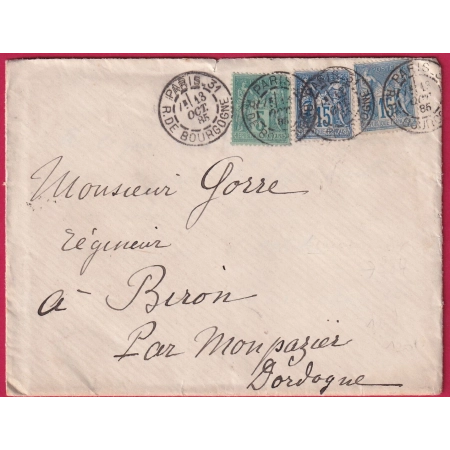 PARIS · 31
13
OCT
85
R. DE BOURGOGNE
15
15
Monsieur Gorre
régineur
à Biron
Par Monpazier
Dordogne